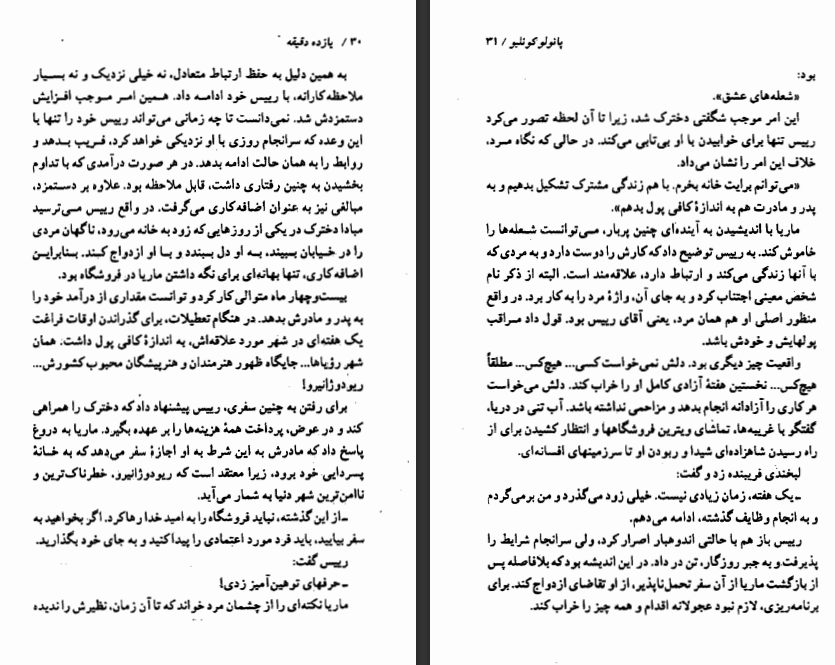 ۳۰ / یازده دقیقه
به همین دلیل به حفظ ارتباط متعادل، نه خیلی نزدیک و نه بسیار
ملاحظه‌کارانه، با رییس خود ادامه داد. همین امر موجب افزایش
دستمزدش شد. نمی‌دانست تا چه زمانی می‌تواند رییس خود را تنها با
این وعده که سرانجام روزی با او نزدیکی خواهد کرد، فریب بدهد و
روابط را به همان حالت ادامه بدهد. در هر صورت درآمدی که با تداوم
بخشیدن به چنین رفتاری داشت، قابل ملاحظه بود. علاوه بر دستمزد،
مبالغی نیز به عنوان اضافه‌کاری می‌گرفت. در واقع رییس می‌ترسید
مبادا دخترک در یکی از روزهایی که زود به خانه می‌رود، ناگهان مردی
را در خیابان ببیند، به او دل ببندد و با او ازدواج کند. بنابراین
اضافه‌کاری، تنها بهانه‌ای برای نگه داشتن ماریا در فروشگاه بود.
بیست‌وچهار ماه متوالی کار کرد و توانست مقداری از درآمد خود را
به پدر و مادرش بدهد. در هنگام تعطیلات، برای گذراندن اوقات فراغت
یک هفته‌ای در شهر مورد علاقه‌اش، به اندازهٔ کافی پول داشت. همان
شهر رؤیاها... جایگاه ظهور هنرمندان و هنرپیشگان محبوب کشورش...
ریودوژانیرو!
برای رفتن به چنین سفری، رییس پیشنهاد داد که دخترک را همراهی
کند و در عوض، پرداخت همهٔ هزینه‌ها را بر عهده بگیرد. ماریا به دروغ
پاسخ داد که مادرش به این شرط به او اجازهٔ سفر می‌دهد که به خانهٔ
پسردایی خود برود، زیرا معتقد است که ریودوژانیرو، خطرناک‌ترین و
ناامن‌ترین شهر دنیا به شمار می‌آید.
ـ از این گذشته، نباید فروشگاه را به امید خدا رها کرد. اگر بخواهید به
سفر بیایید، باید فرد مورد اعتمادی را پیدا کنید و به جای خود بگذارید.
رییس گفت:
ـ حرفهای توهین‌آمیز زدی!
ماریا نکته‌ای را از چشمان مرد خواند که تا آن زمان، نظیرش را ندیده
پائولوکوئلیو / ۳۱
بود:
«شعله‌های عشق».
این امر موجب شگفتی دخترک شد، زیرا تا آن لحظه تصور می‌کرد
رییس تنها برای خوابیدن با او بی‌تابی می‌کند. در حالی که نگاه مرد،
خلاف این امر را نشان می‌داد.
«می‌توانم برایت خانه بخرم. با هم زندگی مشترک تشکیل بدهیم و به
پدر و مادرت هم به اندازهٔ کافی پول بدهم».
ماریا با اندیشیدن به آینده‌ای چنین پربار، می‌توانست شعله‌ها را
خاموش کند. به رییس توضیح داد که کارش را دوست دارد و به مردی که
با آنها زندگی می‌کند و ارتباط دارد، علاقه‌مند است. البته از ذکر نام
شخص معینی اجتناب کرد و به جای آن، واژهٔ مرد را به کار برد. در واقع
منظور اصلی او هم همان مرد، یعنی آقای رییس بود. قول داد مراقب
پولهایش و خودش باشد.
واقعیت چیز دیگری بود. دلش نمی‌خواست کسی... هیچ‌کس... مطلقاً
هیچ‌کس... نخستین هفتهٔ آزادی کامل او را خراب کند. دلش می‌خواست
هر کاری را آزادانه انجام بدهد و مزاحمی نداشته باشد. آب تنی در دریا،
گفتگو با غریبه‌ها، تماشای ویترین فروشگاهها و انتظار کشیدن برای از
راه رسیدن شاهزاده‌ای شیدا و ربودن او تا سرزمینهای افسانه‌ای.
لبخندی فریبنده زد و گفت:
ـ یک هفته، زمان زیادی نیست. خیلی زود می‌گذرد و من برمی‌گردم
و به انجام وظایف گذشته، ادامه می‌دهم.
رییس باز هم با حالتی اندوهبار اصرار کرد، ولی سرانجام شرایط را
پذیرفت و به جبر روزگار، تن در داد. در این اندیشه بود که بلافاصله پس
از بازگشت ماریا از آن سفر تحمل‌ناپذیر، از او تقاضای ازدواج کند. برای
برنامه‌ریزی، لازم نبود عجولانه اقدام و همه چیز را خراب کند.